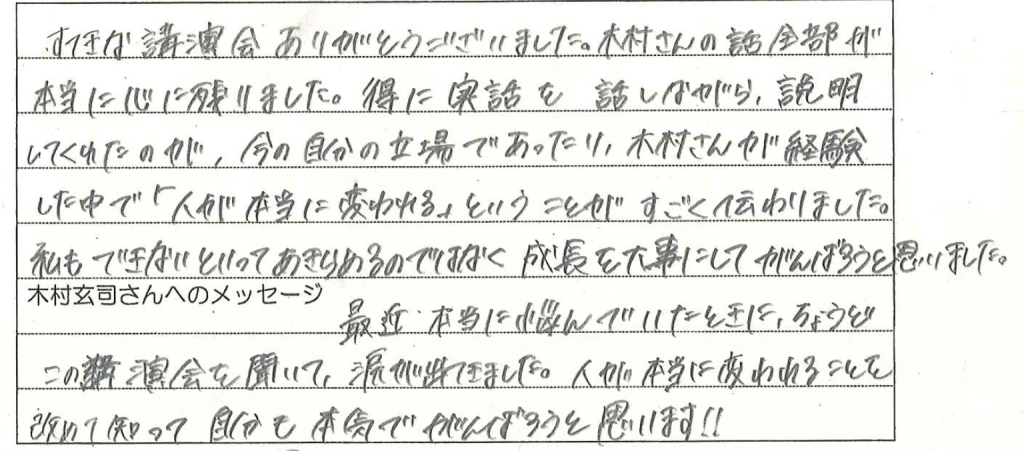 すてきな講演会ありがとうございました。木村さんの話全部が
本当に心に残りました。得に実話を話しながら、説明
してくれたのが、今の自分の立場であったり、木村さんが経験
した中で「人が本当に変われる」ということがすごく伝わりました。
私もできないといってあきらめるのではなく成長を大事にしてがんばろうと思いました。
木村玄司さんへのメッセージ
最近本当に悩んでいたときに、ちょうど
この講演会を聞いて、涙が出てきました。人が本当に変われることを
改めて知って自分も本気でがんばろうと思います!!